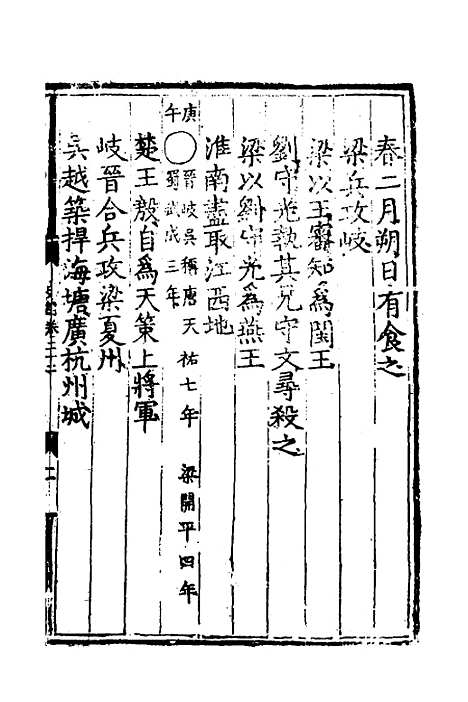 春二月朔日有食之
梁兵攻岐
梁以王審知為閩王
劉守光執其兄守文尋殺之
梁以劉守光為燕王
淮南盡取江西地
庚午〇晉岐吳稱唐天祐七年 梁開平四年
蜀武成三年
楚王殷自為天策上將軍
岐晉合兵攻梁夏州
吳越築捍海塘廣杭州城